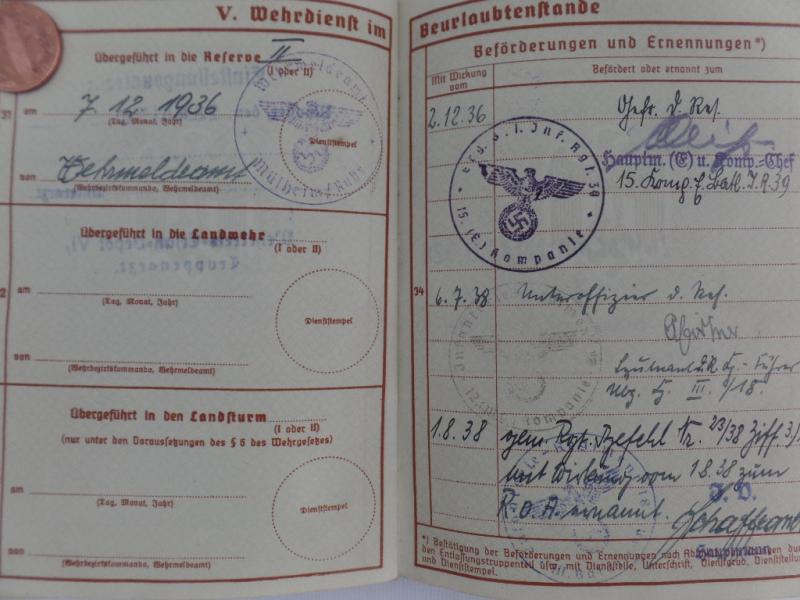 V. Wehrdienst im
Übergeführt in die Reserve II
(I oder II)
am 7.12.1936
(Tag, Monat, Jahr)
Wehrmeldeamt
(Wehrbezirkskommando, Wehrmeldeamt)
Wehrmeldeamt
Mülheim/Ruhr
Dienststempel
Übergeführt in die Landwehr
(I oder II)
am
(Tag, Monat, Jahr)
von
(Wehrbezirkskommando, Wehrmeldeamt)
Dienststempel
Übergeführt in den Landsturm
(I oder II)
(nur unter den Voraussetzungen des § 6 des Wehrgesetzes)
am
(Tag, Monat, Jahr)
von
(Wehrbezirkskommando, Wehrmeldeamt)
Dienststempel
Beurlaubtenstande
Beförderungen und Ernennungen*)
Mit Wirkung vom
Befördert oder ernannt zum
2.12.36 Gefr. d. Res.
Hauptm. (E) u. Komp.-Chef
15. Komp. J.R. 39
Inf. Rgt. 39
* 15. (E.) Kompanie *
34
6.7.38 Unteroffizier d. Res.
Kompanie
1.8.38 gem. Rgt. Befehl Nr. 23/38 Ziff. 3/
mit Wirkung vom 1.8.38 zum
R.O.A. ernannt.
Hauptmann
*) Bestätigung der Beförderungen und Ernennungen nach
den Entlassungstruppenteil usw. mit Dienststelle, Unterschrift, Dienstgrad, Dienststell
und Dienststempel.